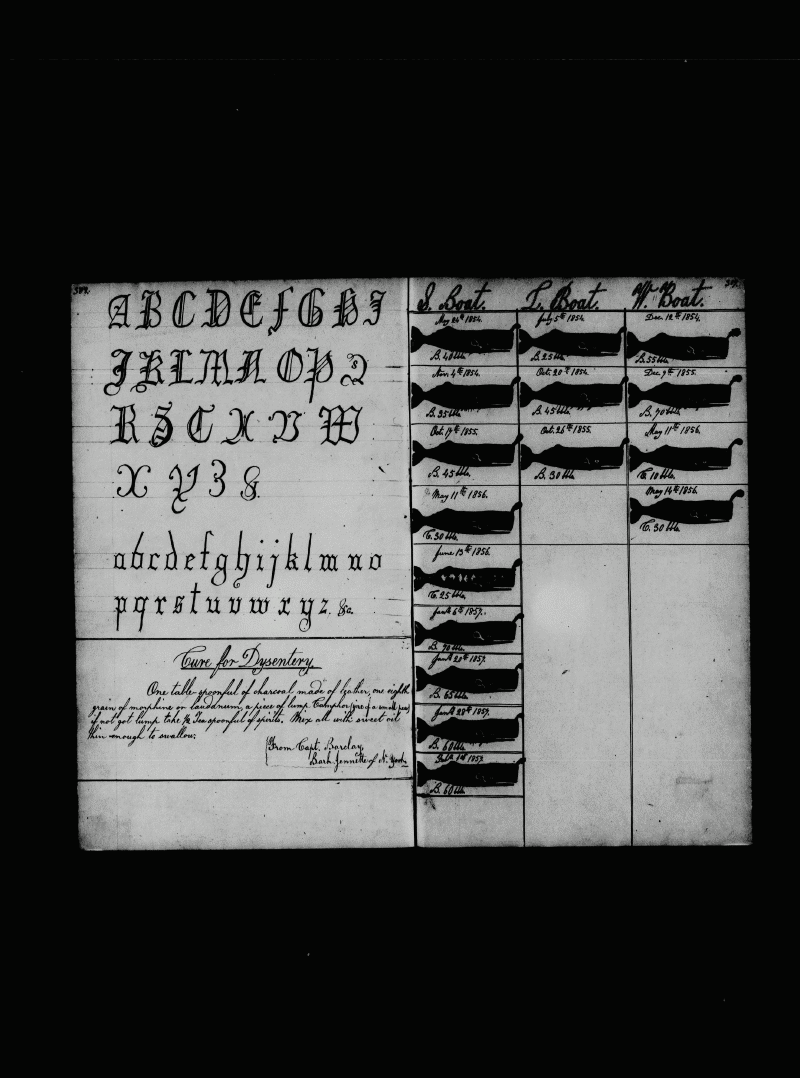 A B C D E F G H I
J K L M N O P Q
R S T U V W
X Y Z &.
a b c d e f g h i j k l m n o
p q r s t u v w x y z. &c.
Cure for Dysentery.
One table spoonful of charcoal made of leather, one eighth
grain of morphine or laudanum, a piece of lump Camphor (size of a small pea)
if not got lump take ½ Tea spoonful of spirits. Mix all with sweet oil
thin enough to swallow.
From Capt. Barclay,
Bark Jennette of N. York
S. Boat.
May 24th 1854.
B. 40 bbls.
Nov. 4th 1854.
B. 35 bbls.
Oct. 17th 1855.
B. 45 bbls.
May 11th 1856.
C. 30 bbls.
June 13th 1856.
C. 25 bbls.
Jan. 6th 1857.
B. 70 bbls.
Jan. 20th 1857.
B. 65 bbls.
Jan. 28th 1857.
B. 60 bbls.
Feb. 1st 1857.
B. 60 bbls.
L. Boat.
July 5th 1854.
B. 25 bbls.
Oct. 20th 1854.
B. 45 bbls.
Oct. 26th 1855.
B. 30 bbls.
W. Boat.
Dec. 12th 1854.
B. 55 bbls.
Dec. 9th 1855.
B. 70 bbls.
May 11th 1856.
C. 10 bbls.
May 14th 1856.
C. 30 bbls.